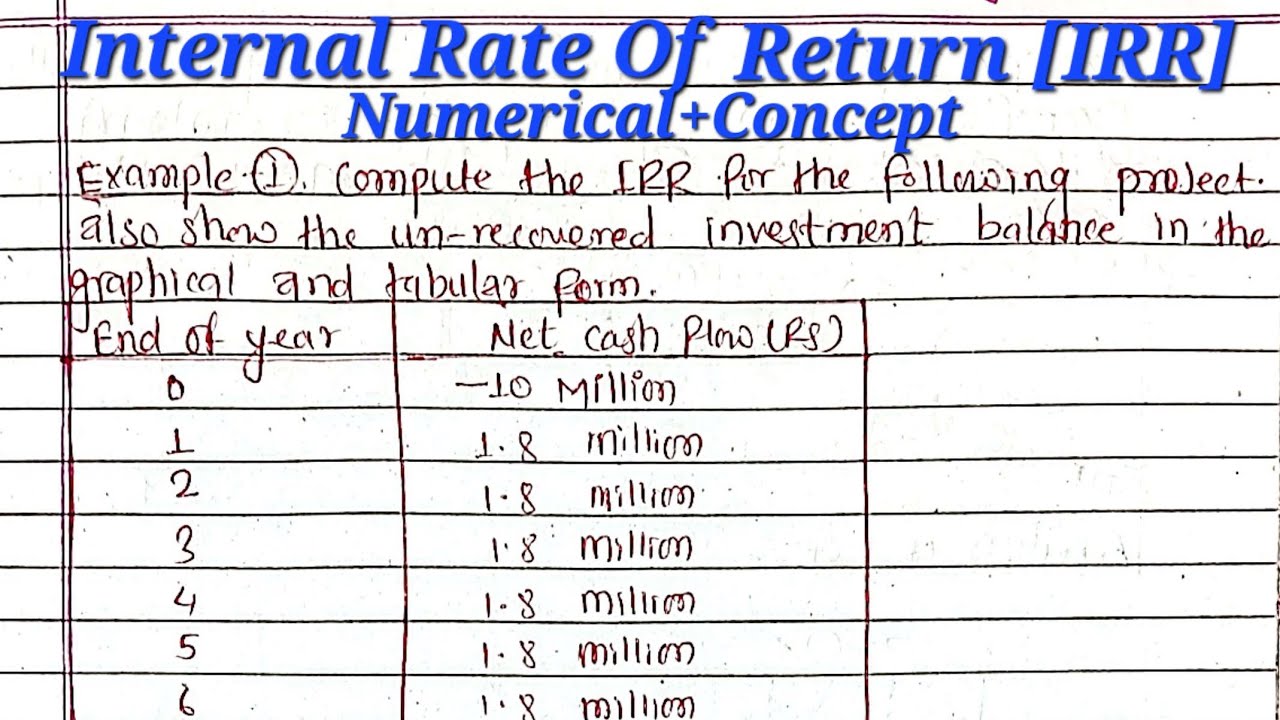 Internal Rate Of Return [IRR]
Numerical+Concept
Example ①. Compute the IRR for the following project.
also show the un-recovered investment balance in the
graphical and tabular form.
End of year Net cash flow (Rs)
0 -10 Million
1 1.8 million
2 1.8 million
3 1.8 million
4 1.8 million
5 1.8 million
6 1.8 million